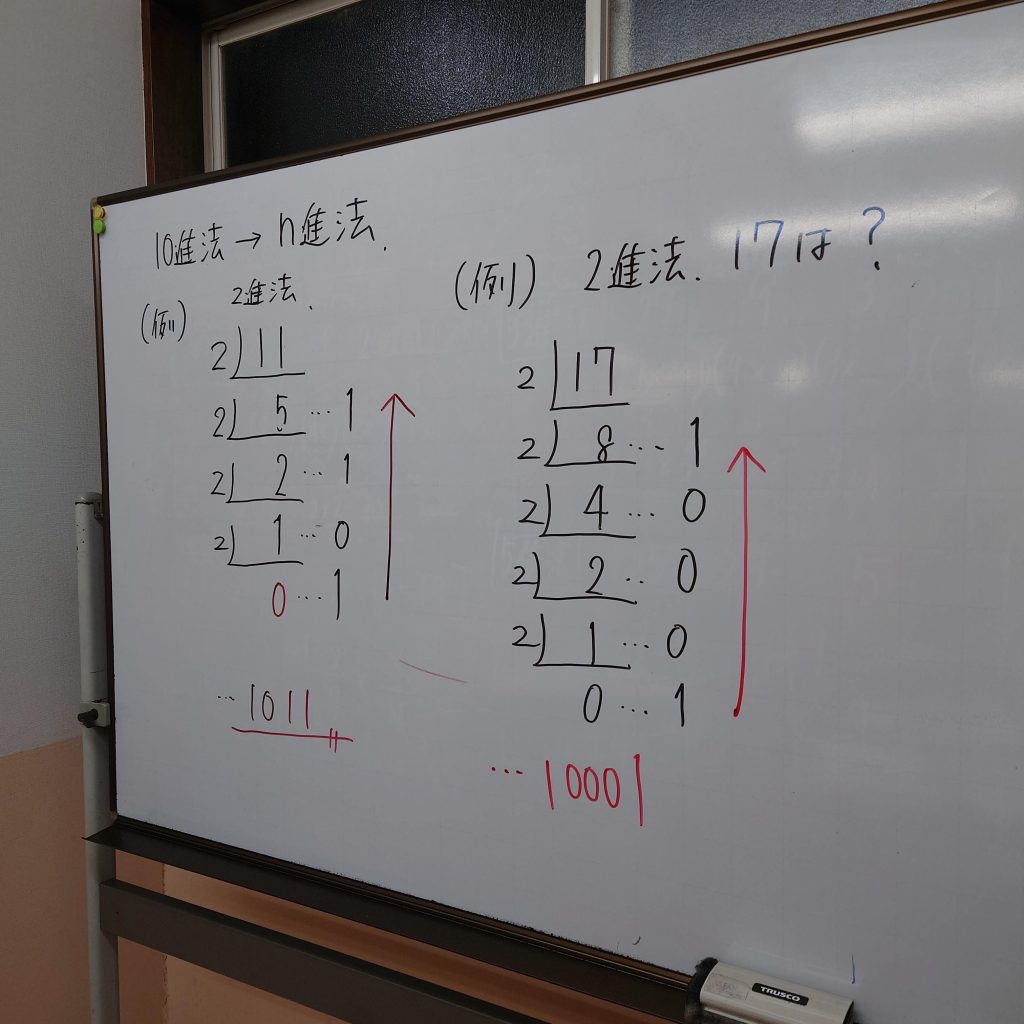 10進法→n進法.
(例) 2進法.
2)11
2)5…1
2)2…1
2)1…0
0…1
…1011
(例) 2進法. 17は?
2)17
2)8…1
2)4…0
2)2‥0
2)1…0
0…1
…10001
TRUSCO